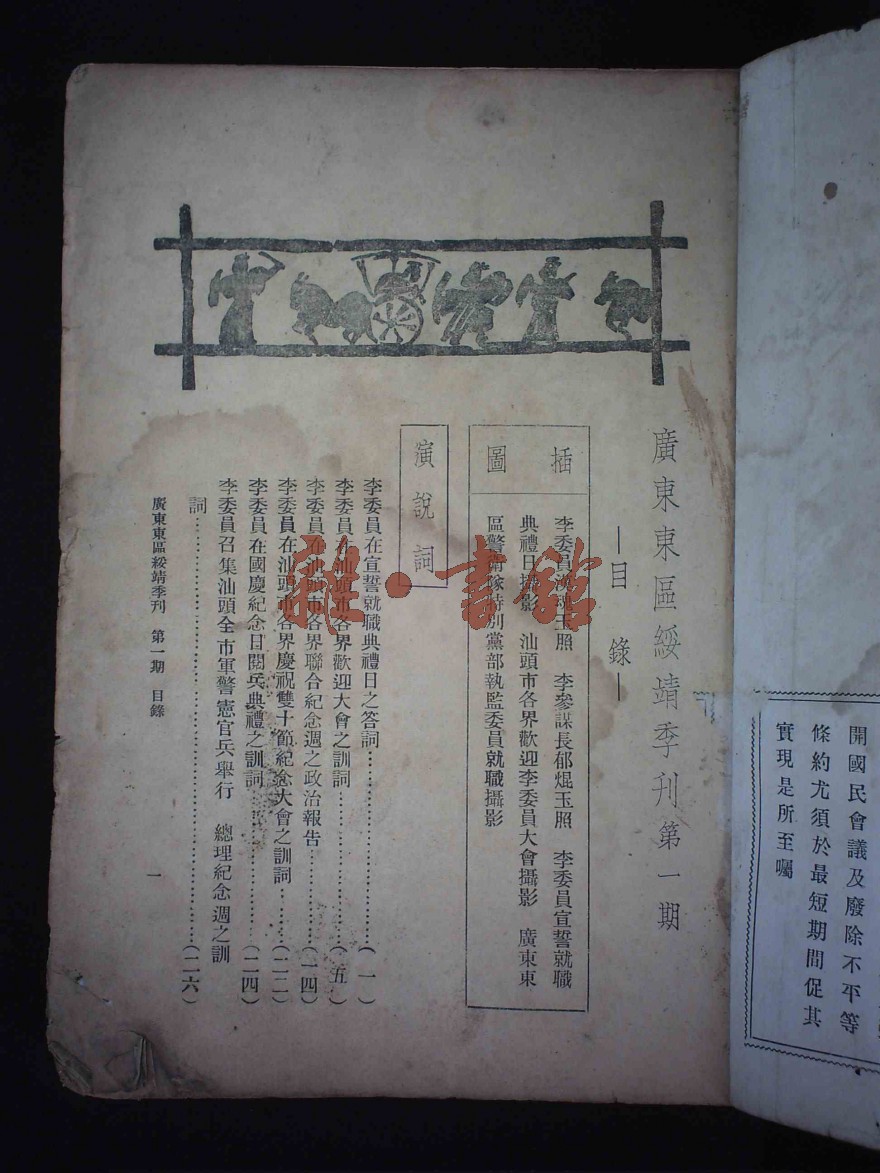 開國民會議及廢除不平等
條約尤須於最短期間促其
實現是所至囑
廣東東區綏靖季刊第一期
—目錄—
插圖
李委員漢魂玉照 李參謀長郁焜玉照 李委員宣誓就職
典禮日攝影 汕頭市各界歡迎李委員大會攝影 廣東東
區警衛隊特別黨部執監委員就職攝影
演說詞
李委員在宣誓就職典禮日之答詞……(一)
李委員在汕頭市各界歡迎大會之訓詞……(五)
李委員在汕頭市各界聯合紀念週之政治報告……(一四)
李委員在汕頭市各界慶祝雙十節紀念大會之訓詞……(二二)
李委員在國慶紀念日閱兵典禮之訓詞……(二四)
李委員召集汕頭全市軍警憲官兵舉行 總理紀念週之訓
詞……(二六)
廣東東區綏靖季刊 第一期 目錄
一
雜·書館